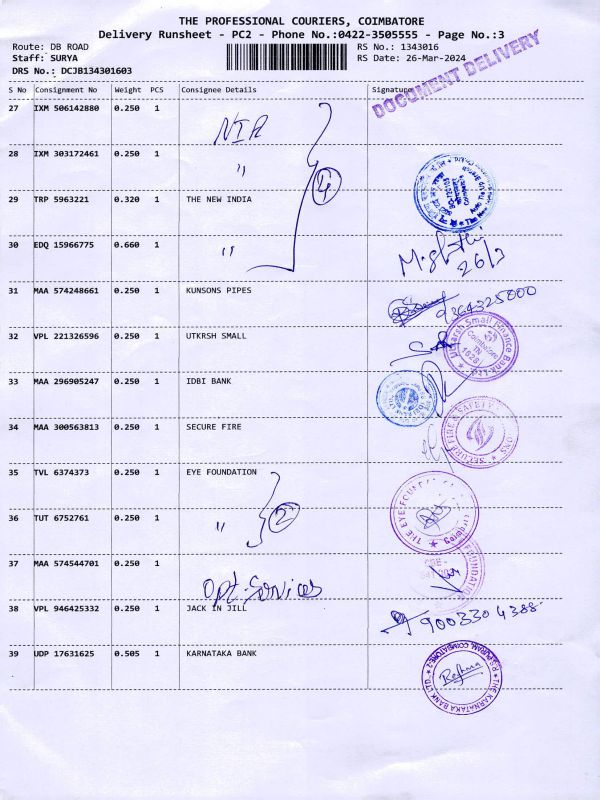 THE PROFESSIONAL COURIERS, COIMBATORE
Delivery Runsheet - PC2 - Phone No.:0422-3505555 - Page No.:3
Route: DB ROAD RS No.: 1343016
Staff: SURYA RS Date: 26-Mar-2024
DRS No.: DCJB134301603
DOCUMENT DELIVERY
S No Consignment No Weight PCS Consignee Details Signature
27 IXM 506142880 0.250 1 NIA
28 IXM 303172461 0.250 1 "
4
29 TRP 5963221 0.320 1 THE NEW INDIA
30 EDQ 15966775 0.660 1 "
26/3
31 MAA 574248661 0.250 1 KUNSONS PIPES 9364325000
32 VPL 221326596 0.250 1 UTKRSH SMALL
Utkarsh Small Finance Bank Ltd. Coimbatore TN 1628
33 MAA 296905247 0.250 1 IDBI BANK
34 MAA 300563813 0.250 1 SECURE FIRE
SECURE FIRE & SAFETY
35 TVL 6374373 0.250 1 EYE FOUNDATION
THE EYE FOUNDATION
36 TUT 6752761 0.250 1 " 2
37 MAA 574544701 0.250 1 Opt. Services
FOUNDATION
38 VPL 946425332 0.250 1 JACK IN JILL 9003304388
39 UDP 17631625 0.505 1 KARNATAKA BANK
THE KARNATAKA BANK LTD. R.S.PURAM, COIMBATORE-2